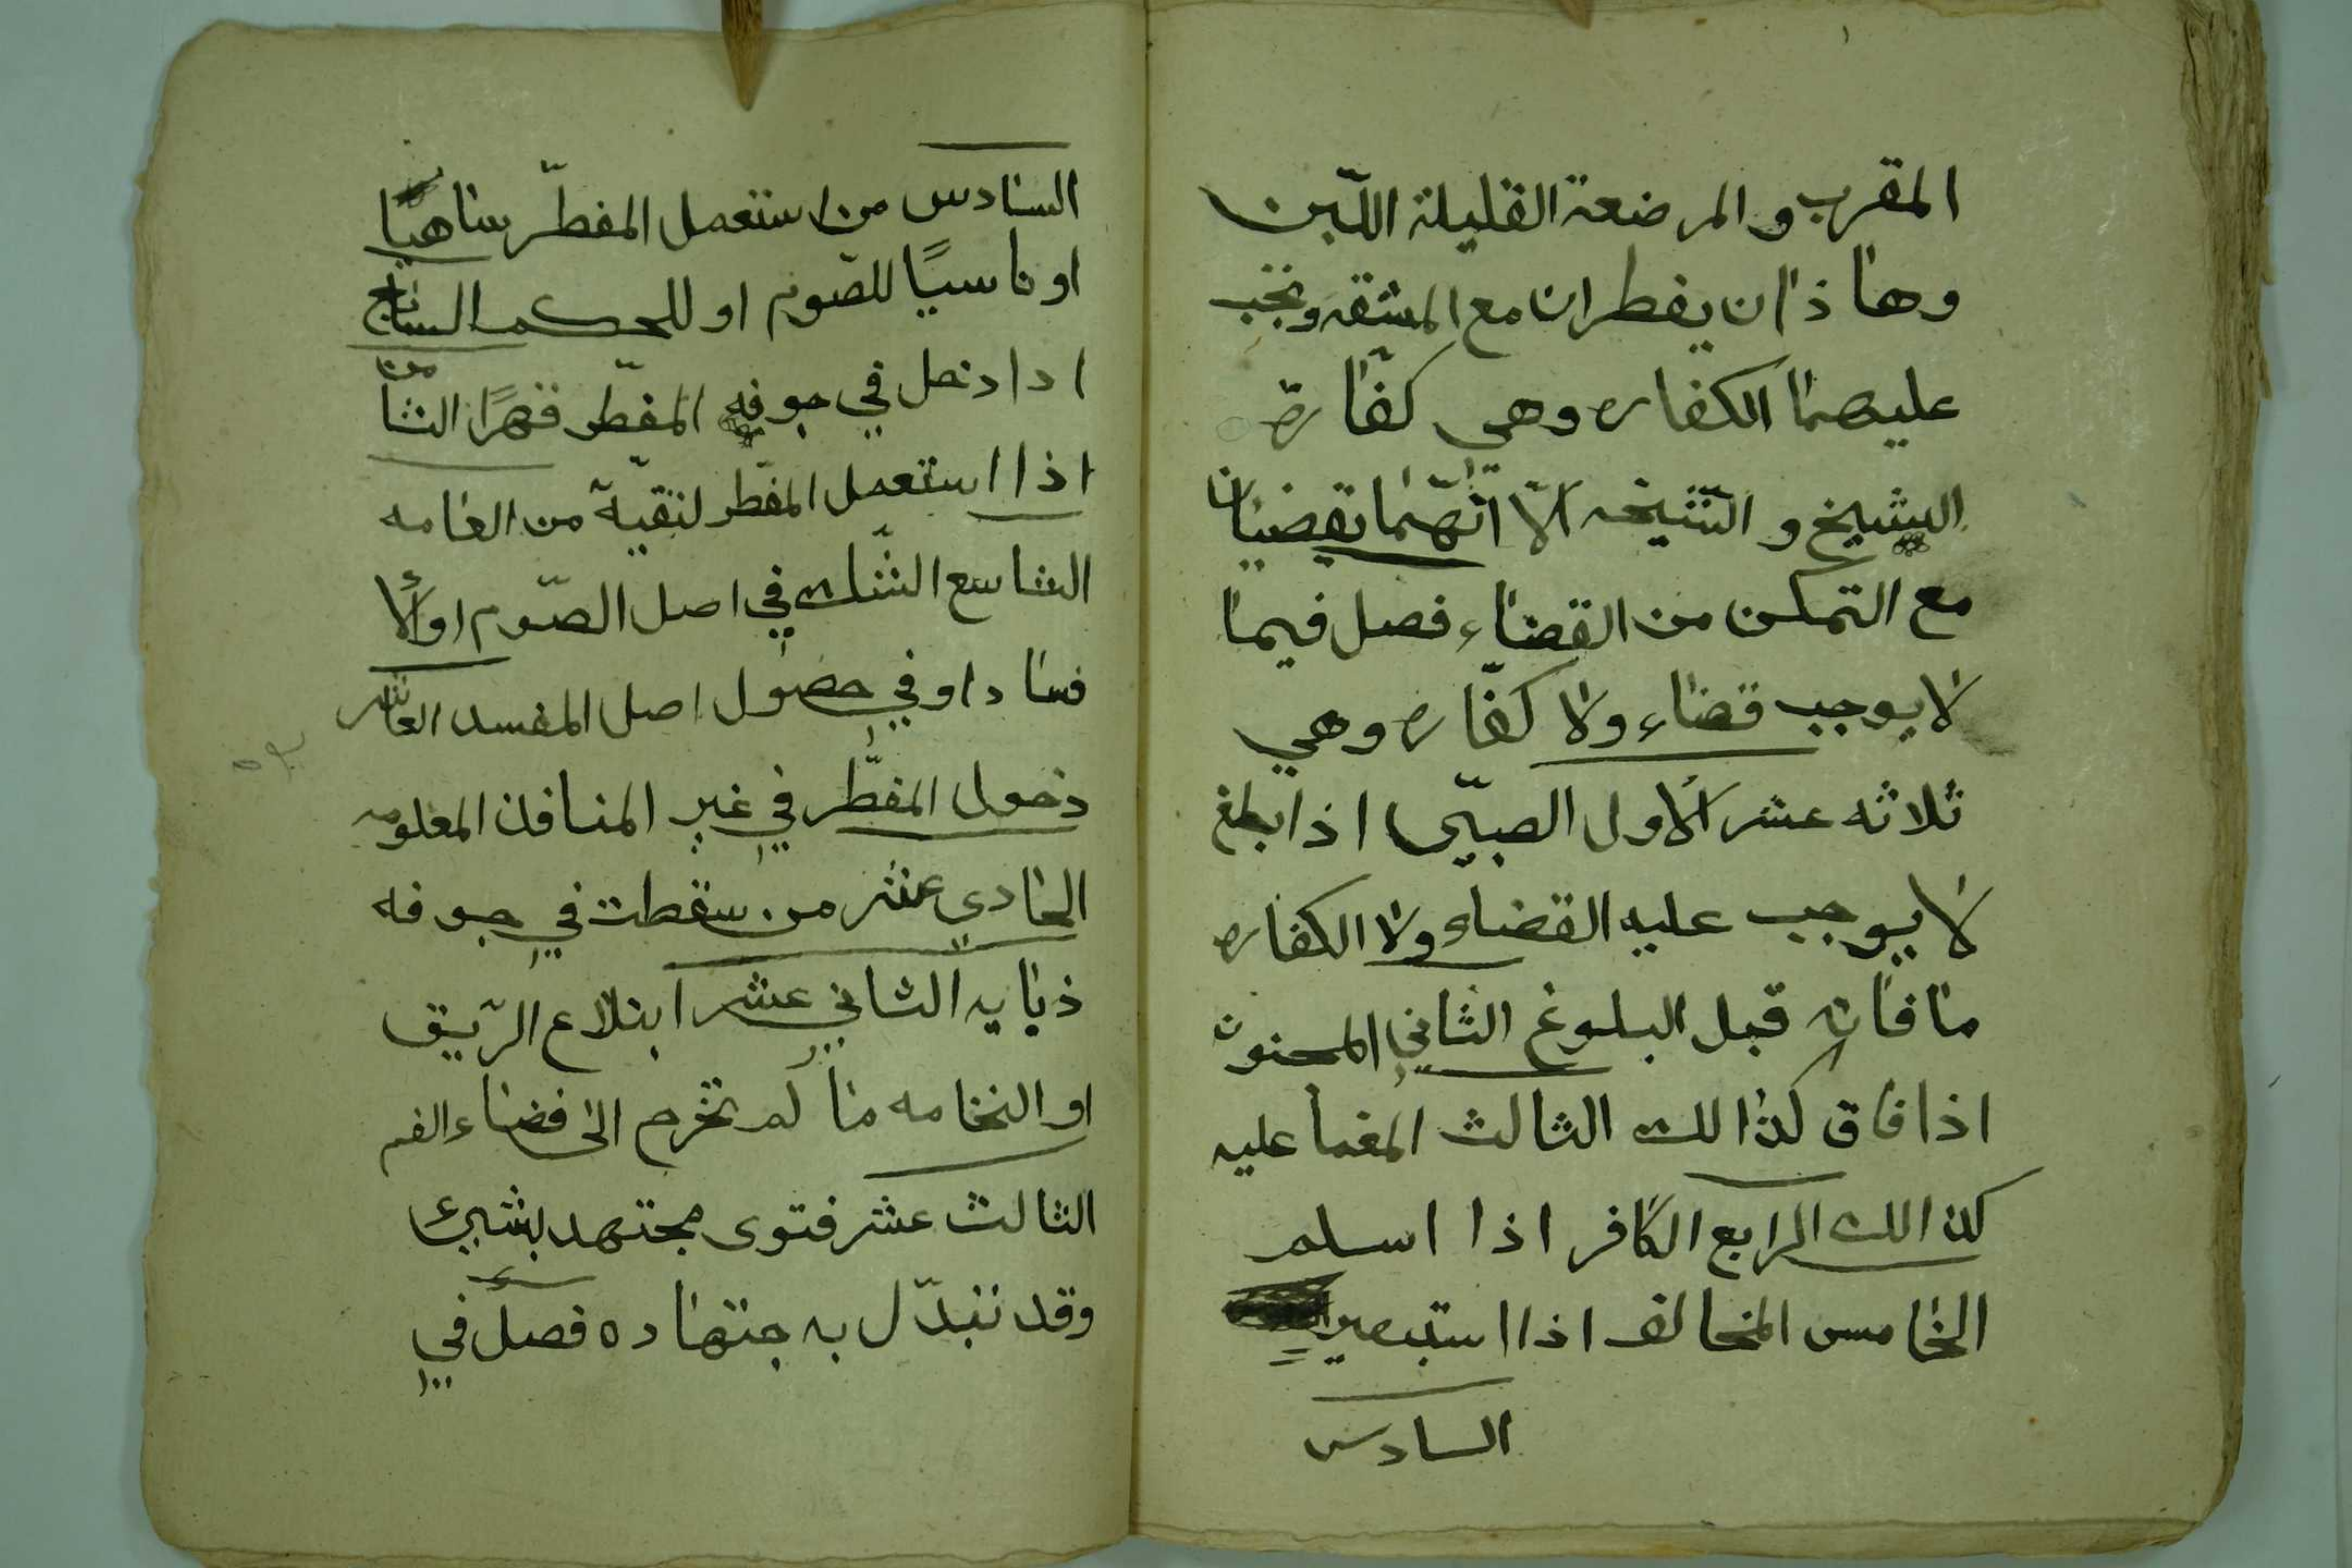 المقرب والمرضعة القليلة اللّبن
وهاذان يفطران مع المشقه وتجب
عليهما الكفاره وهي كفّارة
الشيخ والشّيخه الّا انّهما يقضيان
مع التمكن من القضاء فصل فيما
لا يوجب قضاء ولا كفّاره وهي
ثلاثه عشر الأول الصبيّ اذا بلغ
لا يوجب عليه القضاء ولا الكفاره
ما فاته قبل البلوغ الثاني المجنون
اذا فاق كذالك الثالث المغما عليه
كذالك الرابع الكافر اذا اسلم
الخامس المخالف اذا استبصر
السادس
السادس من استعمل المفطّر ساهيًا
او ناسيًا للصّوم او للحكم السابع
اذا دخل في جوفه المفطّر قهرًا الثامن
اذا استعمل المفطر لتقيّة من العامه
التاسع الشّك في اصل الصّوم اولًا
فسادا وفي حصول اصل المفسد العاشر
دخول المفطّر في غير المنافذ المعلومه
الحادي عشر من سقطت في جوفه
ذبابه الثاني عشر ابتلاع الرّيق
او النخامه ما لم تخرج الى فضاء الفم
الثالث عشر فتوى مجتهد بشيء
وقد تبدّل به جتهاده فصل في